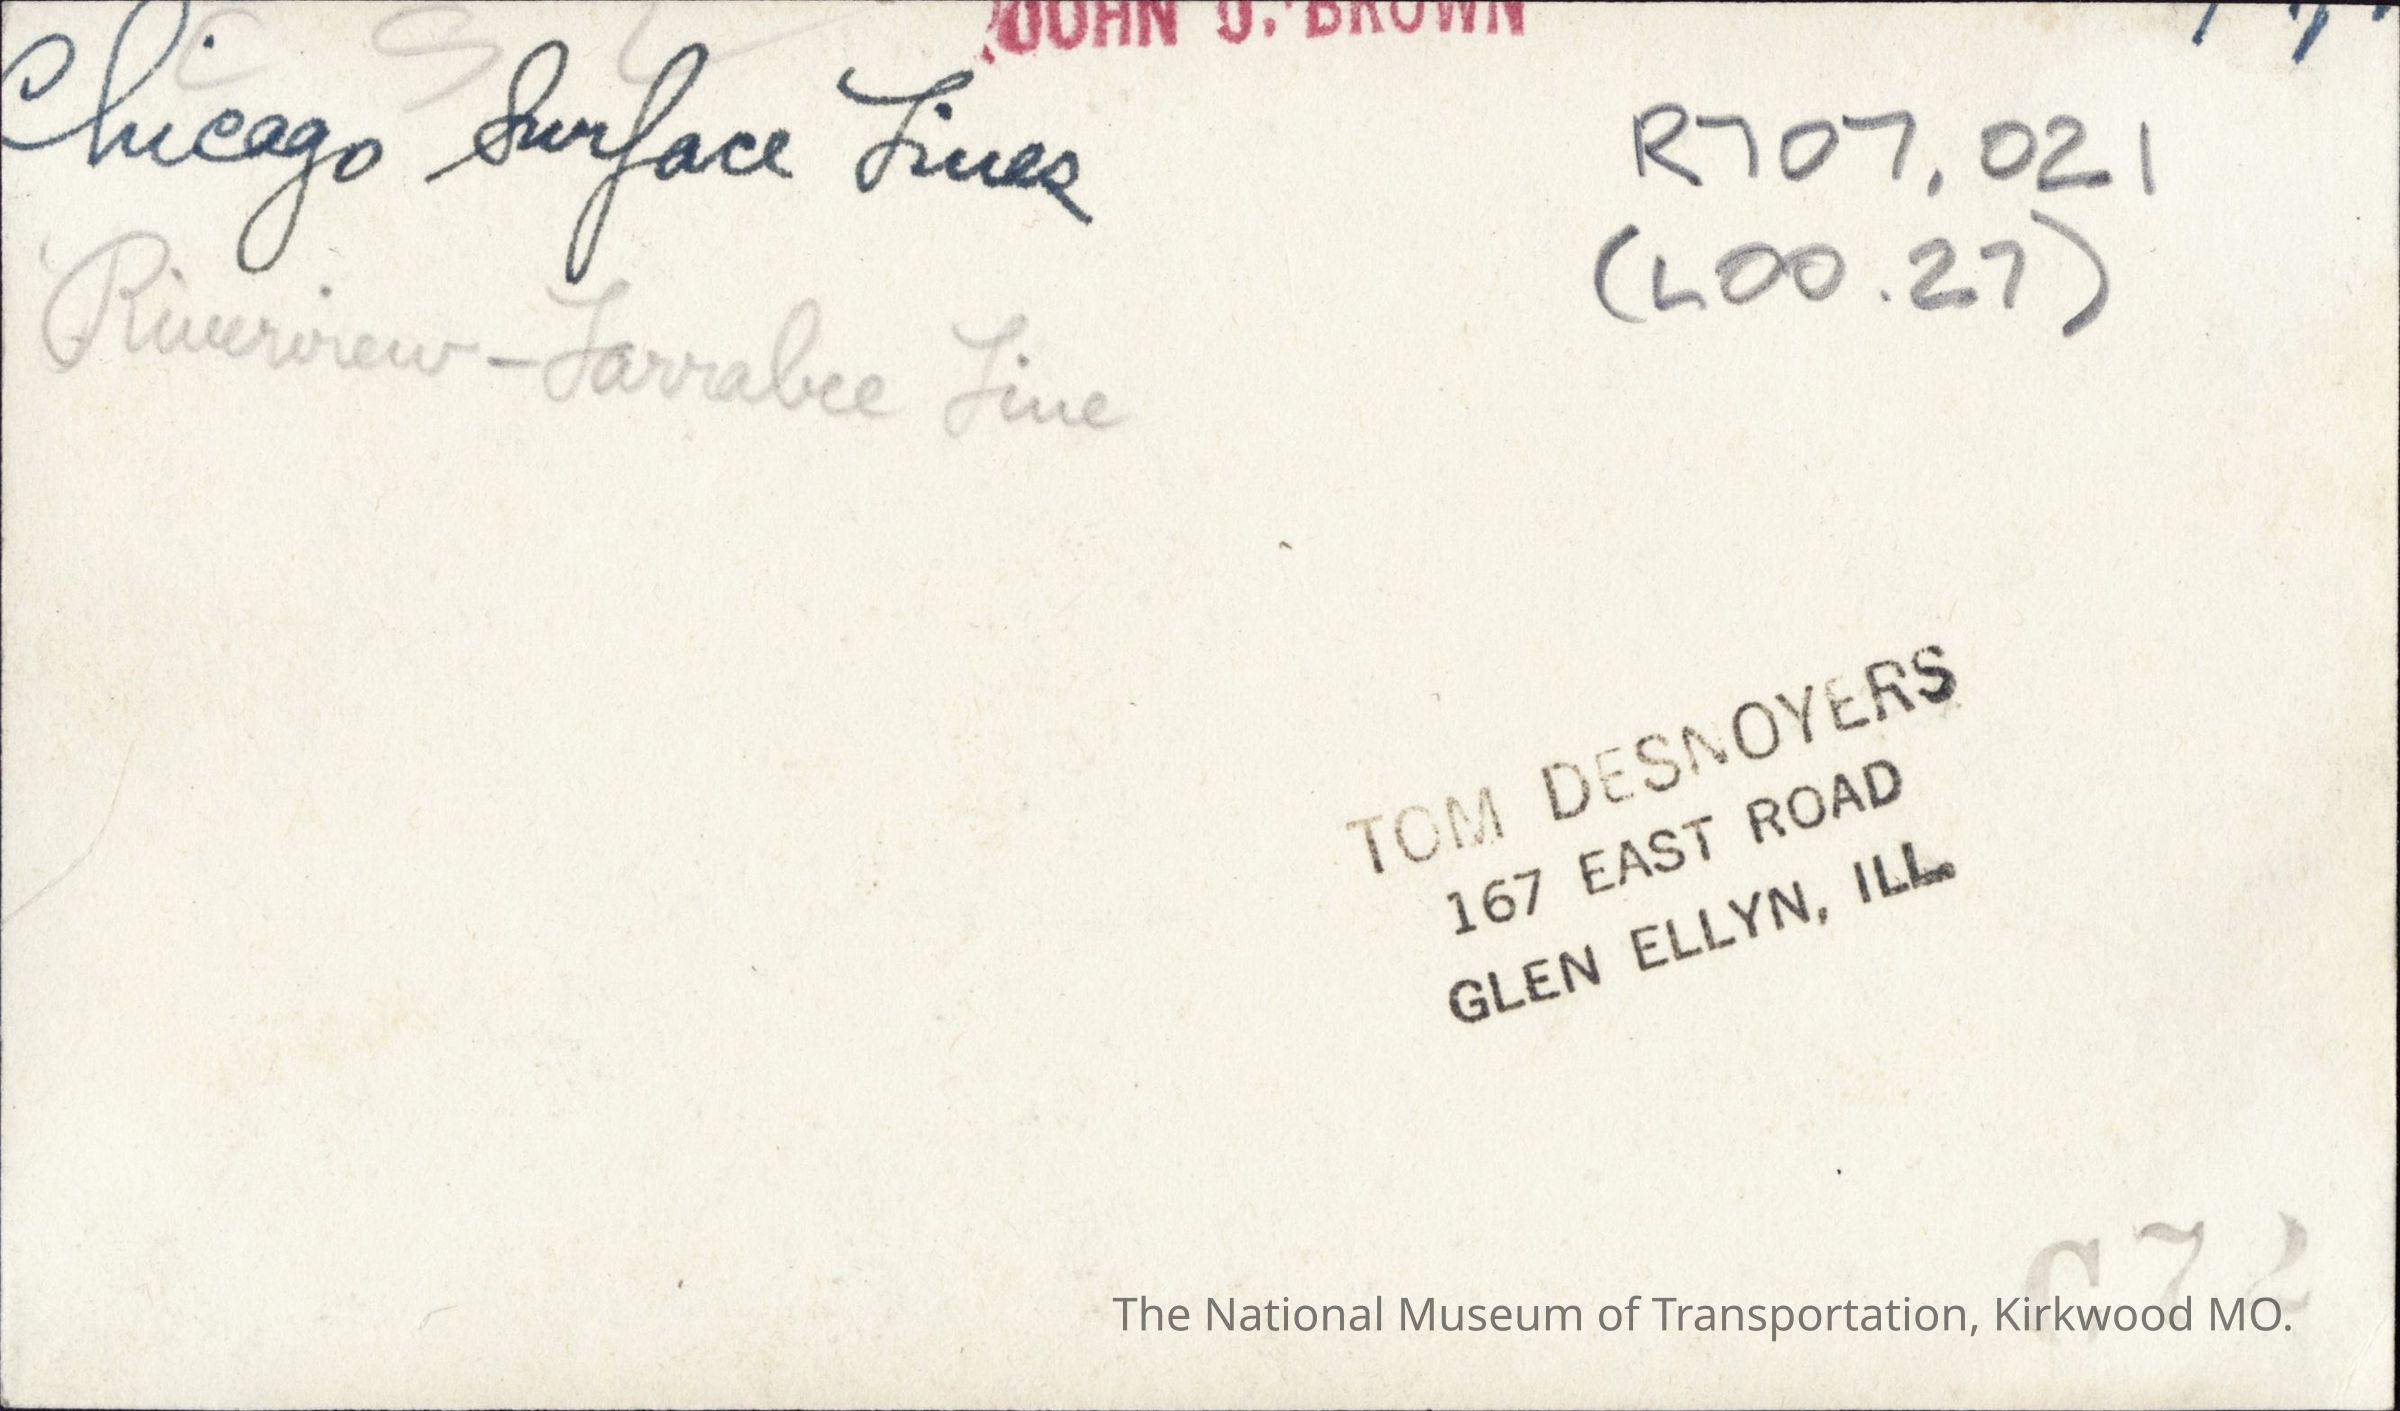 C S L
JOHN J. BROWN
Chicago Surface Lines
R707.021
(L00.27)
Riverview-Larrabee Line
TOM DESNOYERS
167 EAST ROAD
GLEN ELLYN, ILL.
C72
The National Museum of Transportation, Kirkwood MO.